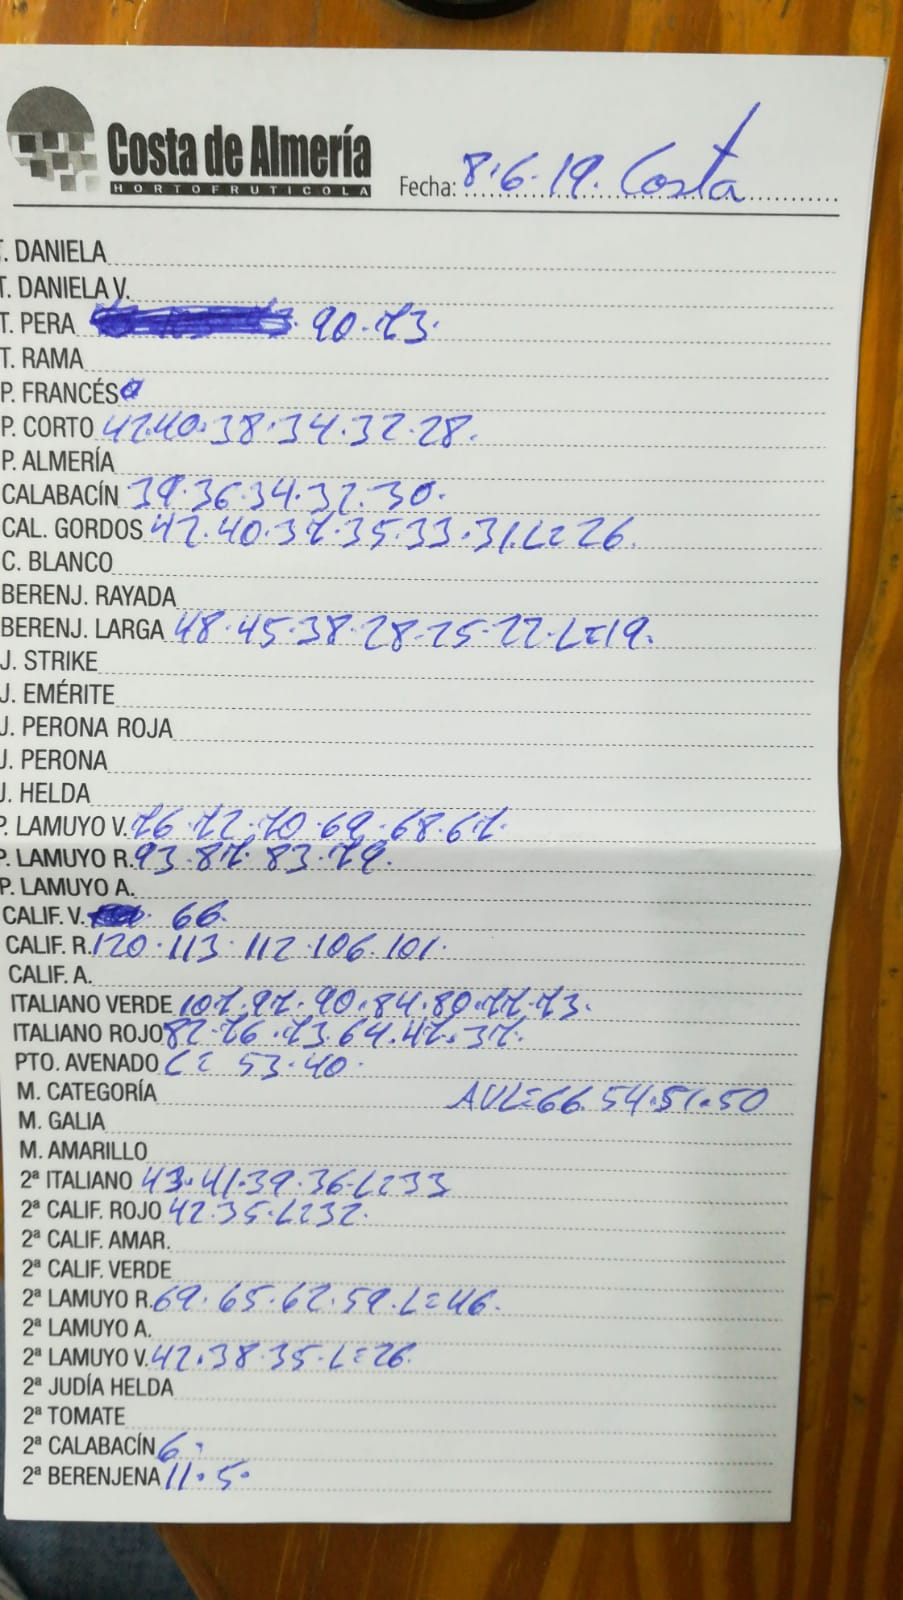 Costa de Almería
HORTOFRUTICOLA
Fecha: 8.6.19. Costa
T. DANIELA
T. DANIELA V.
T. PERA 90.73.
T. RAMA
P. FRANCÉS
P. CORTO 42.40.38.34.32.28.
P. ALMERÍA
CALABACÍN 39.36.34.32.30.
CAL. GORDOS 42.40.37.35.33.31.L=26.
C. BLANCO
BERENJ. RAYADA
BERENJ. LARGA 48.45.38.28.25.22.L=19.
J. STRIKE
J. EMÉRITE
J. PERONA ROJA
J. PERONA
J. HELDA
P. LAMUYO V. 76.72.70.69.68.67.
P. LAMUYO R. 93.87.83.79.
P. LAMUYO A.
CALIF. V. 66.
CALIF. R. 120.113.112.106.101.
CALIF. A.
ITALIANO VERDE 107.97.90.84.80.77.73.
ITALIANO ROJO 82.76.73.64.47.37.
PTO. AVENADO L= 53.40.
M. CATEGORÍA AVL=66.54.51.50
M. GALIA
M. AMARILLO
2ª ITALIANO 43.41.39.36.L=33
2ª CALIF. ROJO 42.35.L=32.
2ª CALIF. AMAR.
2ª CALIF. VERDE
2ª LAMUYO R. 69.65.62.59.L=46.
2ª LAMUYO A.
2ª LAMUYO V. 42.38.35.L=26.
2ª JUDÍA HELDA
2ª TOMATE
2ª CALABACÍN 6.
2ª BERENJENA 11.5.